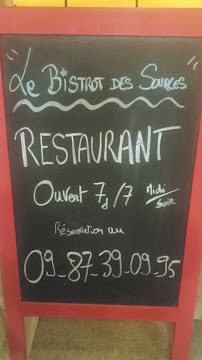 "Le Bistrot des Sources"
RESTAURANT
Ouvert 7j/7 Midi/Soir
Réservation au
09_87_39_09_95